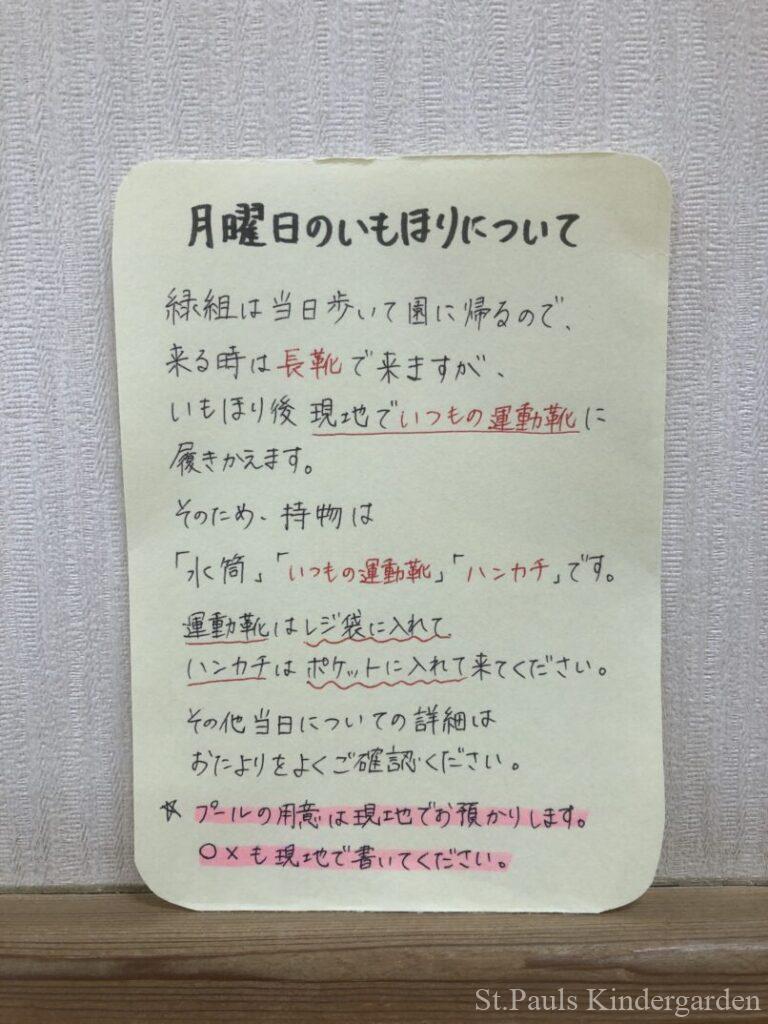 月曜日のいもほりについて
緑組は当日歩いて園に帰るので、
来る時は長靴で来ますが、
いもほり後 現地でいつもの運動靴に
履きかえます。
そのため、持物は
「水筒」「いつもの運動靴」「ハンカチ」です。
運動靴はレジ袋に入れて
ハンカチはポケットに入れて来てください。
その他当日についての詳細は
おたよりをよくご確認ください。
☆ プールの用意は現地でお預かりします。
○×も現地で書いてください。
St.Pauls Kindergarden